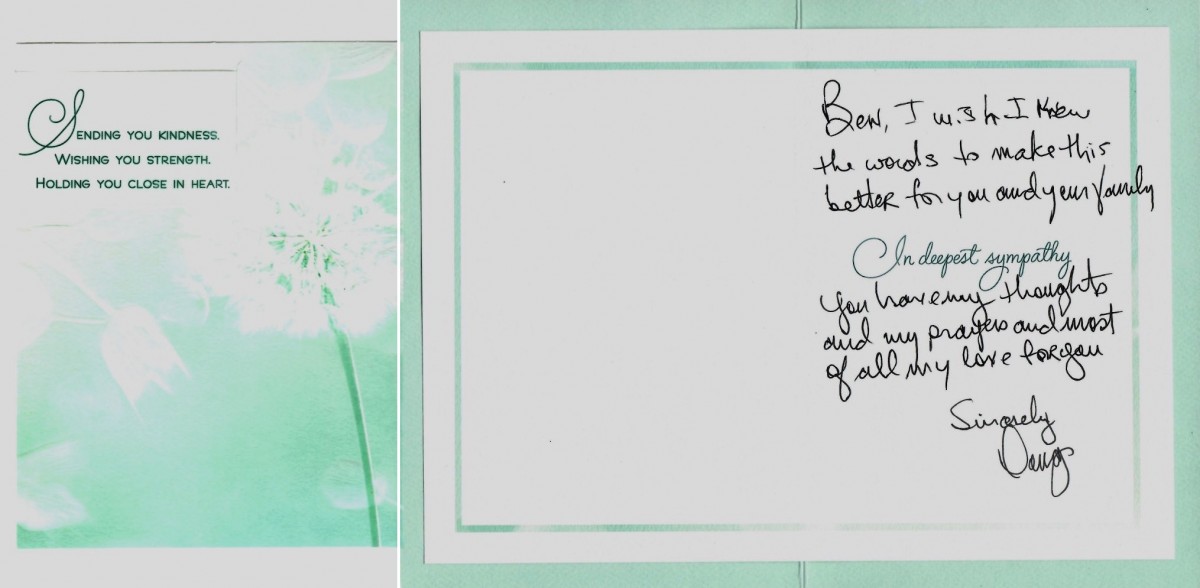 SENDING YOU KINDNESS.
WISHING YOU STRENGTH.
HOLDING YOU CLOSE IN HEART.
Ben, I wish I knew
the words to make this
better for you and your family
In deepest sympathy
You have my thoughts
and my prayers and most
of all my love for you
Sincerely
Doug